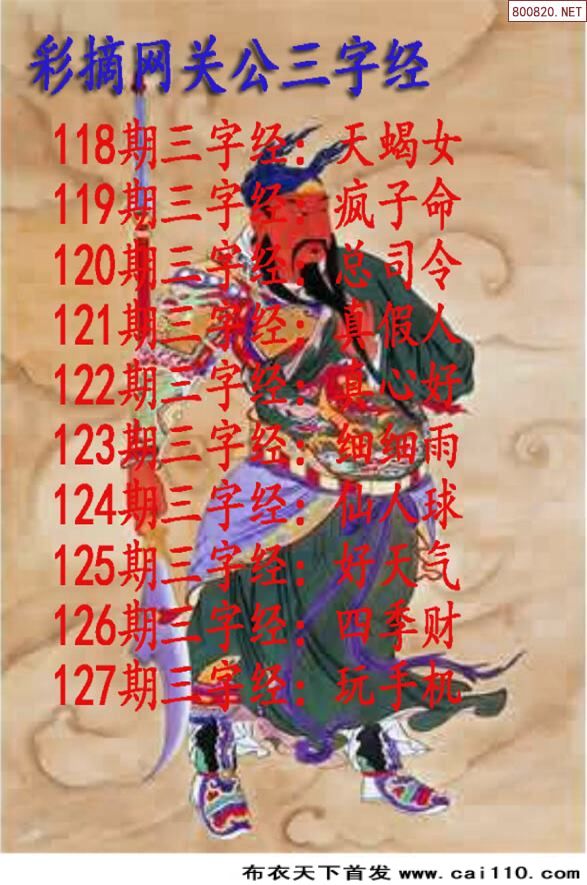 800820.NET
彩摘网关公三字经
118期三字经：天蝎女
119期三字经：疯子命
120期三字经：总司令
121期三字经：真假人
122期三字经：真心好
123期三字经：细细雨
124期三字经：仙人球
125期三字经：好天气
126期三字经：四季财
127期三字经：玩手机
布衣天下首发 www.cai110.com